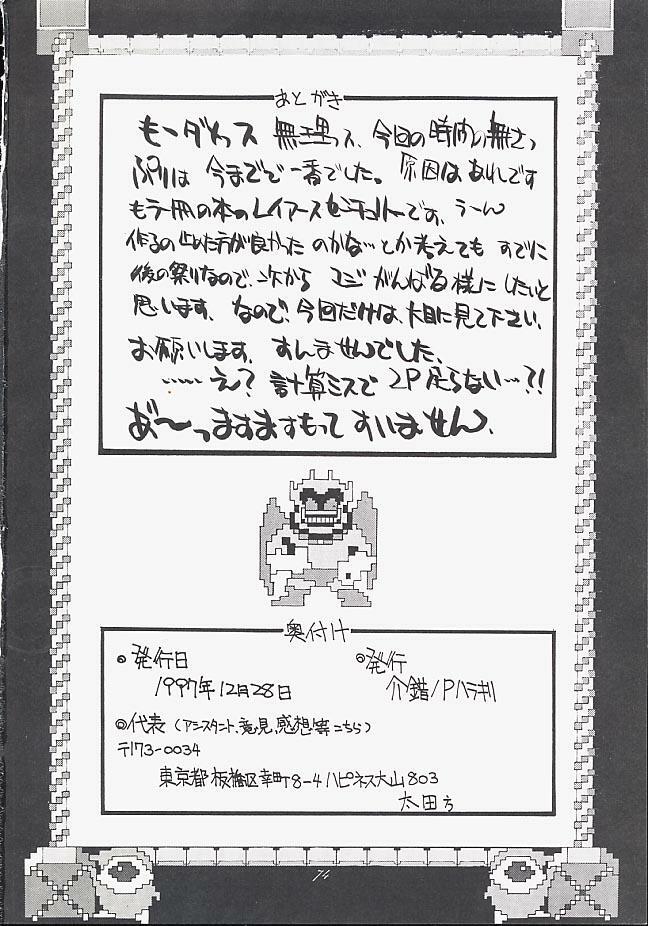 あとがき
もーダメっス 無理っス、今回の時間の無さっ
ぷりは 今までで一番でした。原因はあれです
もう一冊の本のレイアース です、うーん
作るの止めた方が良かった のかな…とか考えても すでに
後の祭りなので、次から マジ がんばる様に したいと
思います、なので、今回だけは、大目に見て下さい、
お願いします、すんませんでした、
……え? 計算ミスで 2P足らない…?!
あ゛〜っますますもって すいません、
奥付け
◎発行日
1997年12月28日
◎発行
介錯/Pハラキリ
◎代表 (アシスタント、意見、感想等こちら)
〒173-0034
東京都板橋区幸町8-4ハピネス大山803
太田方
74